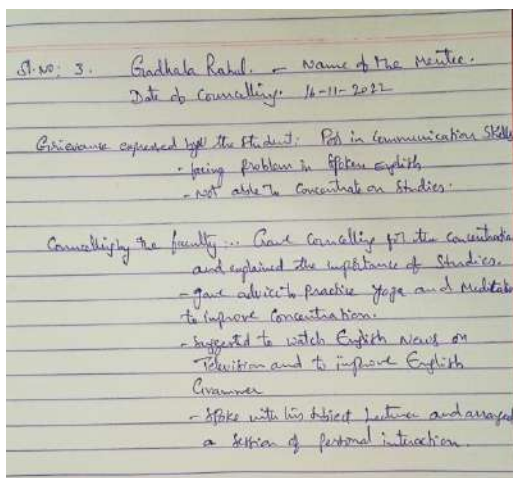 Sl.No: 3. Gadhala Rahul. – Name of the Mentee.
Date of Councelling. 16-11-2022
Grievance expressed by the student: Poor in Communication Skills
- facing Problem in Spoken English
- Not able to Concentrate on Studies.
Councelling by the faculty :. Gave Councelling for the Concentration
and explained the importance of Studies.
- gave advice to Practice Yoga and Meditation
to improve Concentration.
- Suggested to watch English News on
Television and to improve English
Grammer
- Spoke with his Subject Lecturer and arranged
a Session of personal interaction.